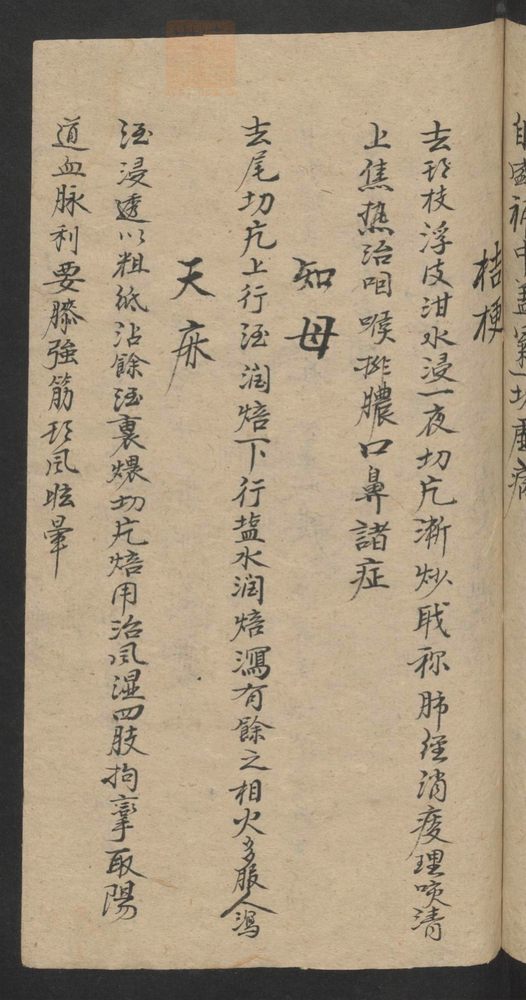 桔梗
去玏枝浮皮泔水浸一夜切片漸炒戝称肺經消痰理咳清
上焦热治咽喉排膿口鼻諸症
知母
去尾切片上行酒润焙下行盐水润焙瀉有餘之相火多服人瀉
天麻
酒浸透以粗纸沾餘酒裏煨切片焙用治風濕四肢拘挛取陽
道血脉利要膝強筋玏風眩暈